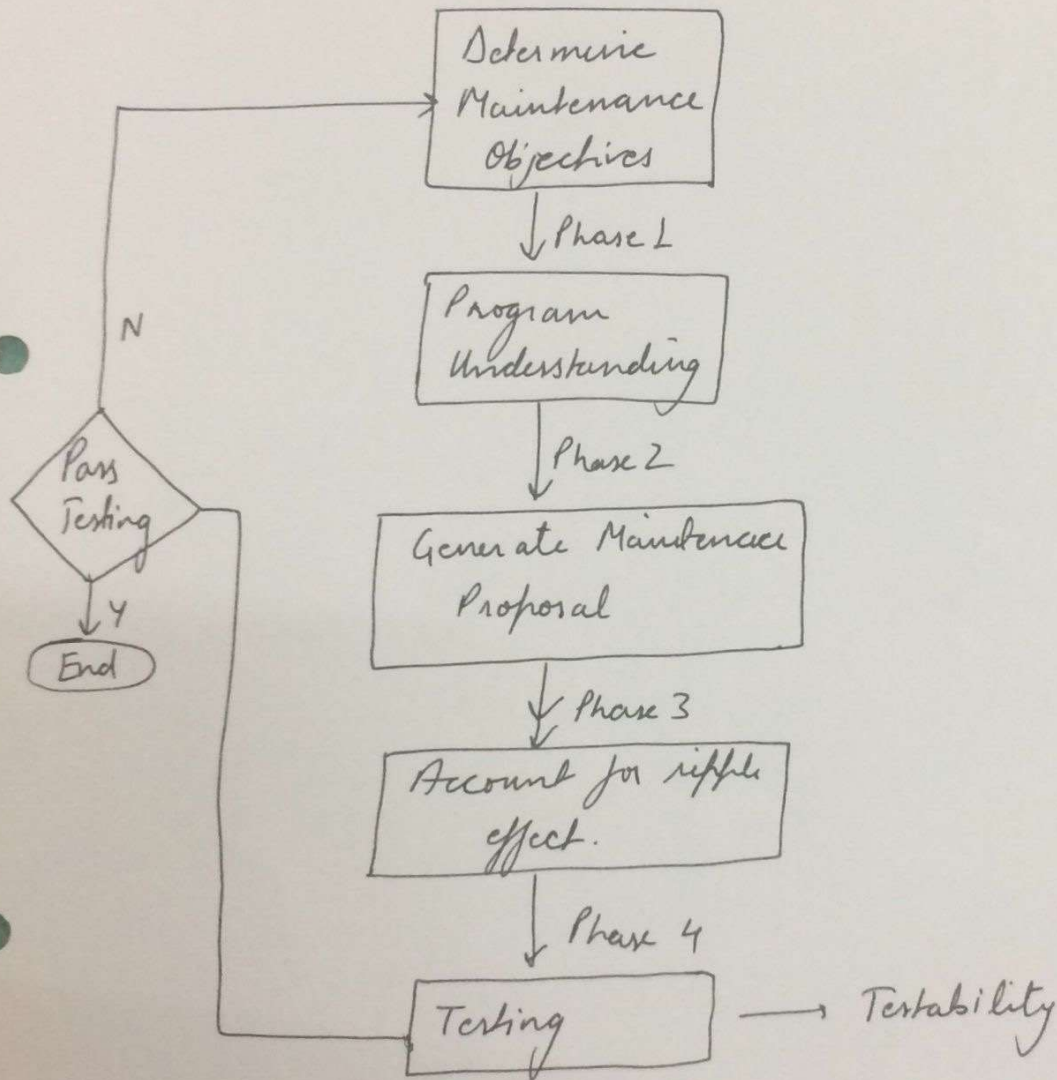 Determine
Maintenance
Objectives
Phase 1
Program
Understanding
Phase 2
Generate Maintenace
Proposal
Phase 3
Account for ripple
effect.
Phase 4
Testing
Testability
N
Pass
Testing
Y
End